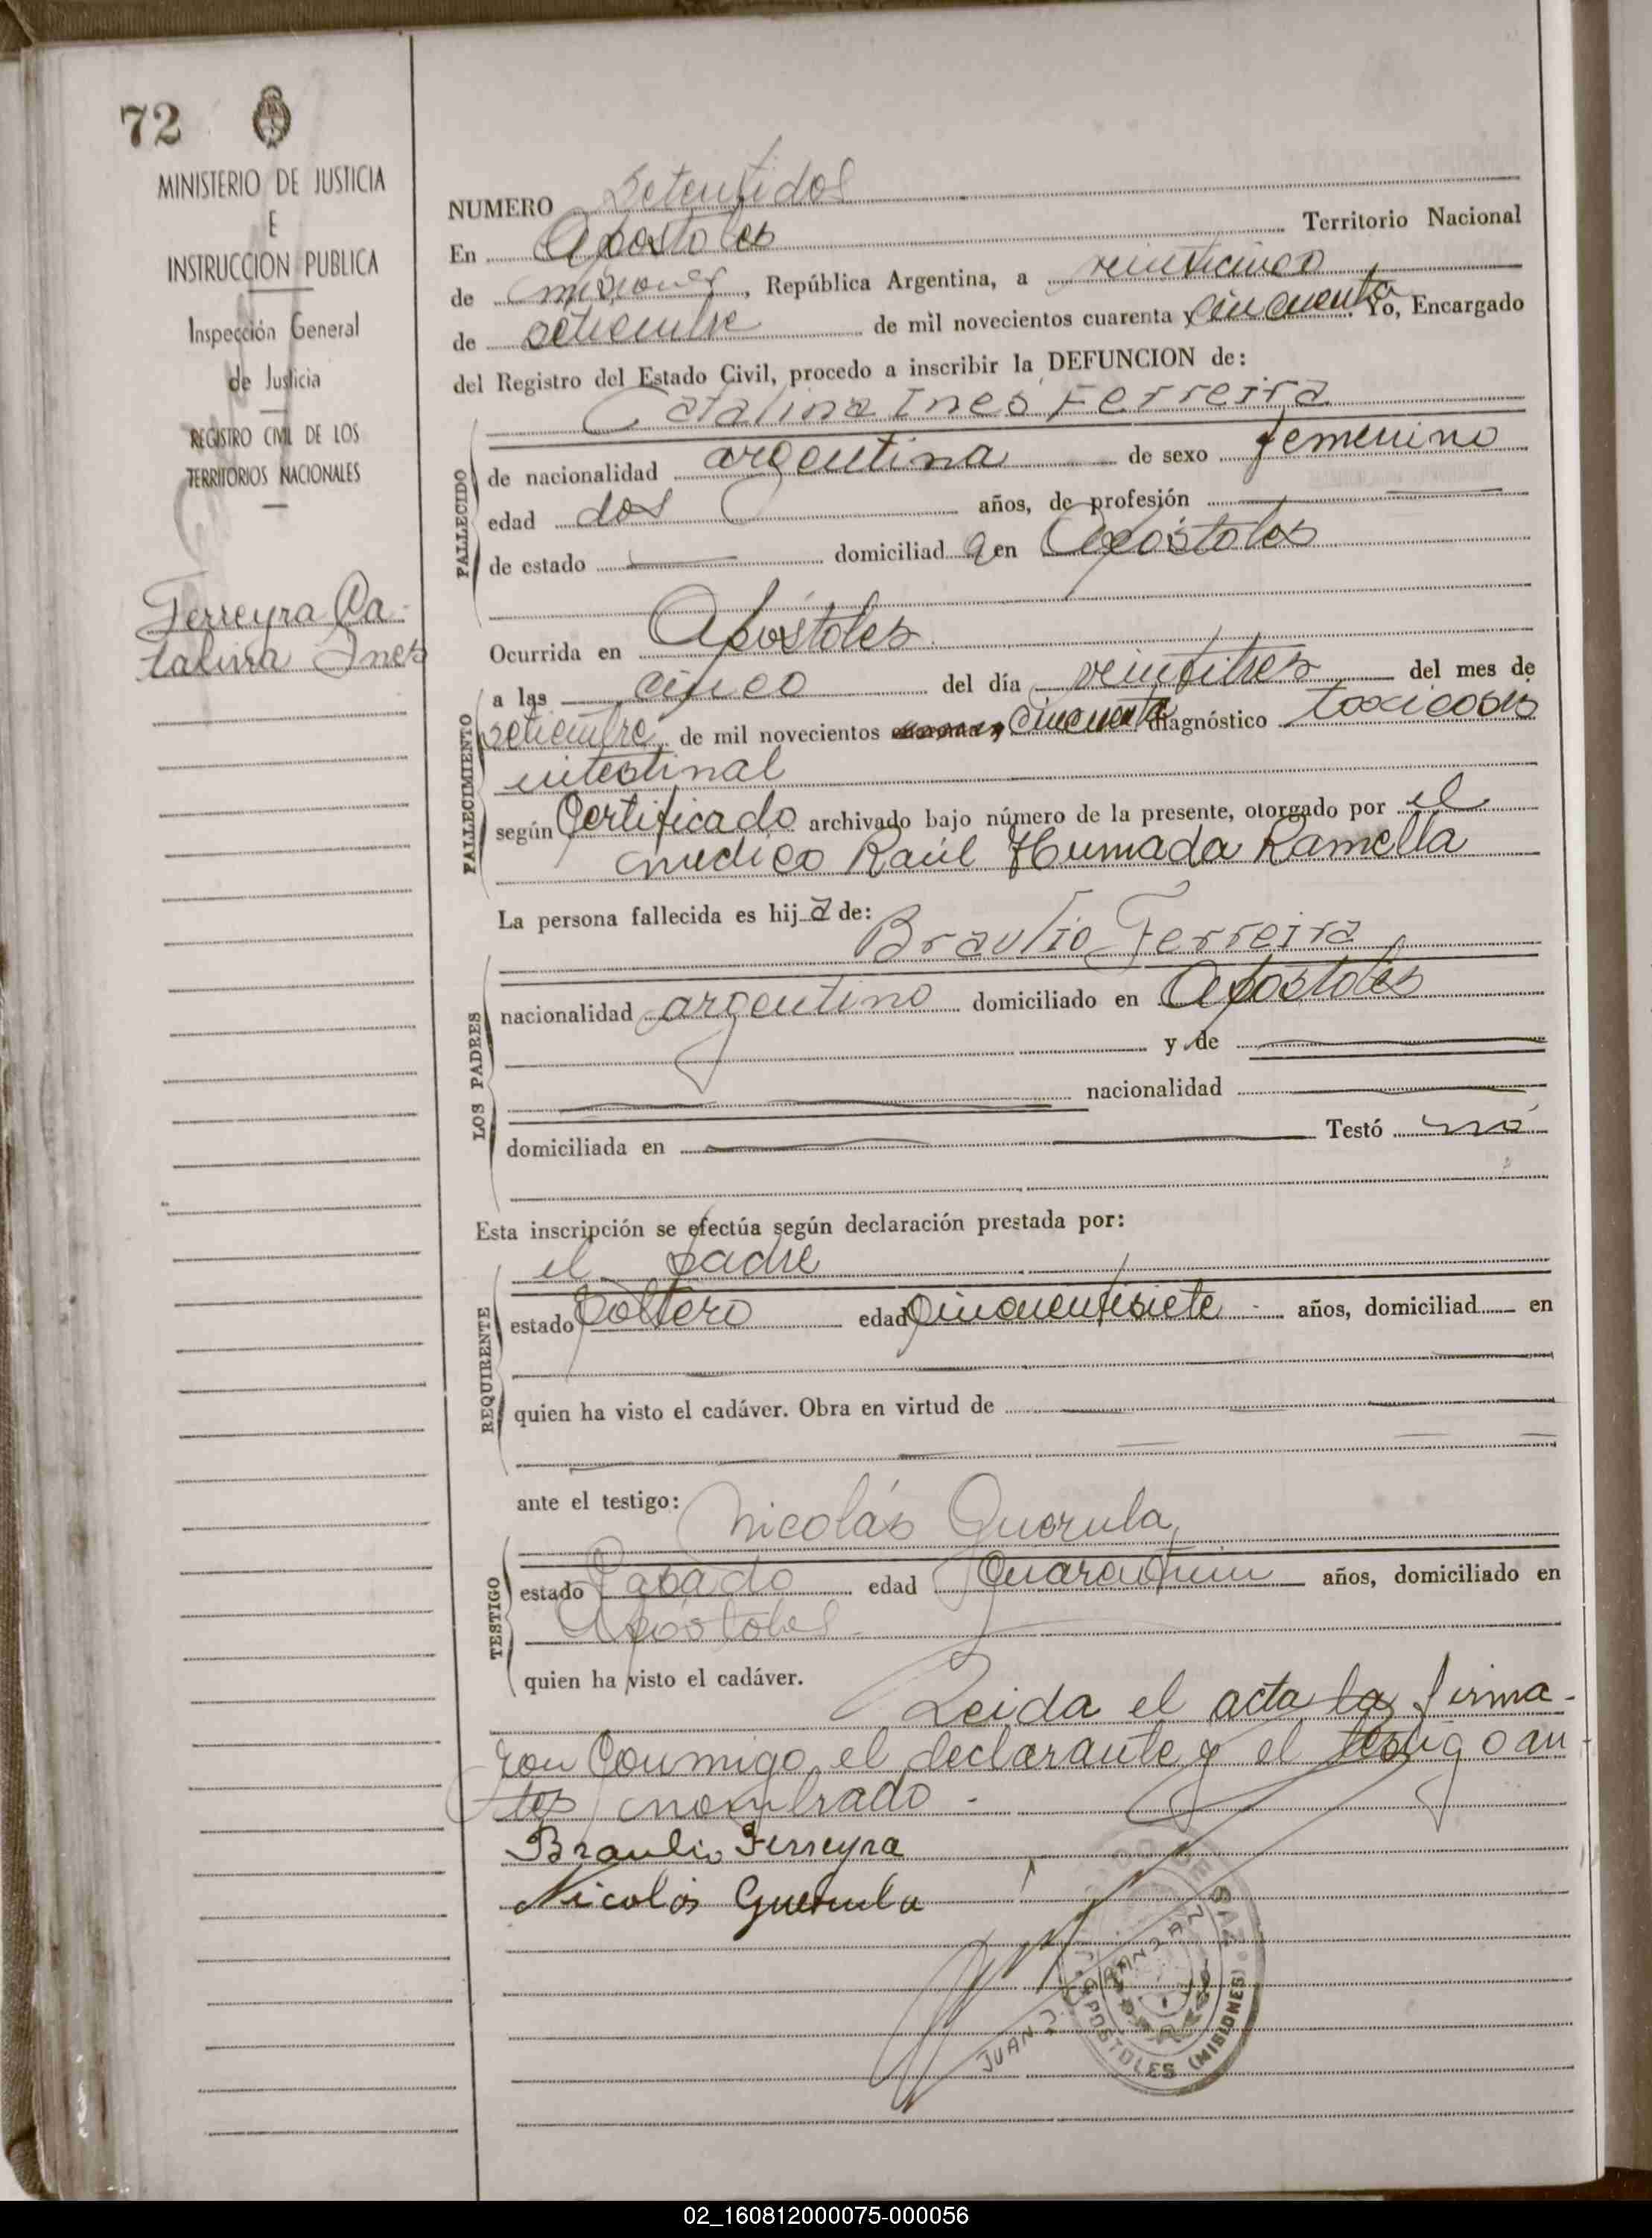 72
MINISTERIO DE JUSTICIA
E
INSTRUCCION PUBLICA
Inspección General
de Justicia
REGISTRO CIVIL DE LOS
TERRITORIOS NACIONALES
Ferreyra Ca-
talina Ines
NUMERO Setentidos
En Apostoles Territorio Nacional
de misiones, República Argentina, a veinticinco
de setiembre de mil novecientos cuarenta y cincuenta. Yo, Encargado
del Registro del Estado Civil, procedo a inscribir la DEFUNCION de:
Catalina Ines Ferreira
FALLECIDO
de nacionalidad argentina de sexo femenino
edad dos años, de profesión
de estado domiciliad a en Apóstoles
Ocurrida en Apóstoles
FALLECIMIENTO
a las cinco del día veintitres del mes de
setiembre de mil novecientos cincuenta diagnóstico toxicosis
intestinal
según Certificado archivado bajo número de la presente, otorgado por el
medico Raúl Humada Ramella
La persona fallecida es hij a de:
Braulio Ferreira
LOS PADRES
nacionalidad argentino domiciliado en Apostoles
y de
nacionalidad
domiciliada en Testó nó
Esta inscripción se efectúa según declaración prestada por:
el padre
REQUIRENTE
estado soltero edad cincuentisiete años, domiciliad en
quien ha visto el cadáver. Obra en virtud de
ante el testigo: Nicolás Guerula
TESTIGO
estado Casado edad cuarentiun años, domiciliado en
Apóstoles
quien ha visto el cadáver.
Leida el acta la firma-
ron conmigo el declarante y el testigo an-
tes nombrado.
Braulio Ferreyra
Nicolás Guerula
JUAN J.
APOSTOLES (MISIONES)
02_160812000075-000056